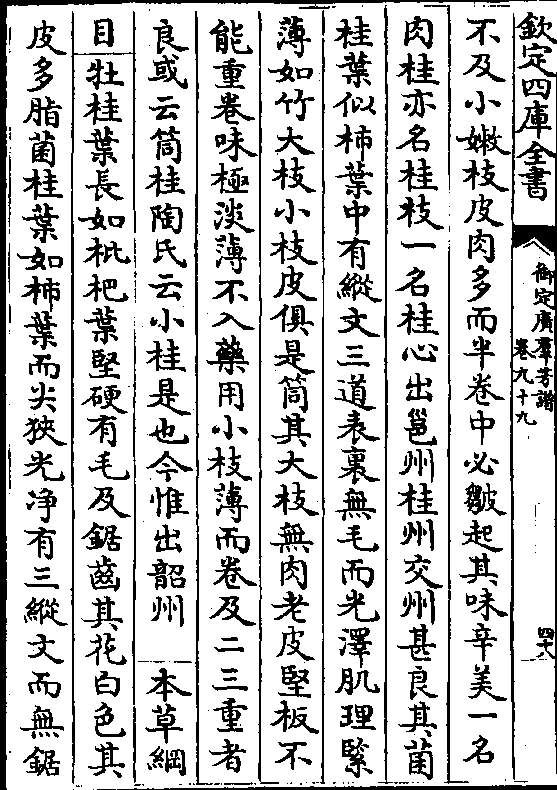 欽定四庫全書
御定廣羣芳譜
卷九十九
四十八
不及小嫩枝皮肉多而半卷中必皺起其味辛美一名
肉桂亦名桂枝一名桂心出邕州桂州交州甚良其菌
桂葉似柿葉中有縱文三道表裏無毛而光澤肌理緊
薄如竹大枝小枝皮俱是筒其大枝無肉老皮堅板不
能重卷味極淡薄不入藥用小枝薄而卷及二三重者
良或云筒桂陶氏云小桂是也今惟出韶州 本草綱
目牡桂葉長如枇杷葉堅硬有毛及鋸齒其花白色其
皮多脂菌桂葉如柿葉而尖狹光净有三縱文而無鋸